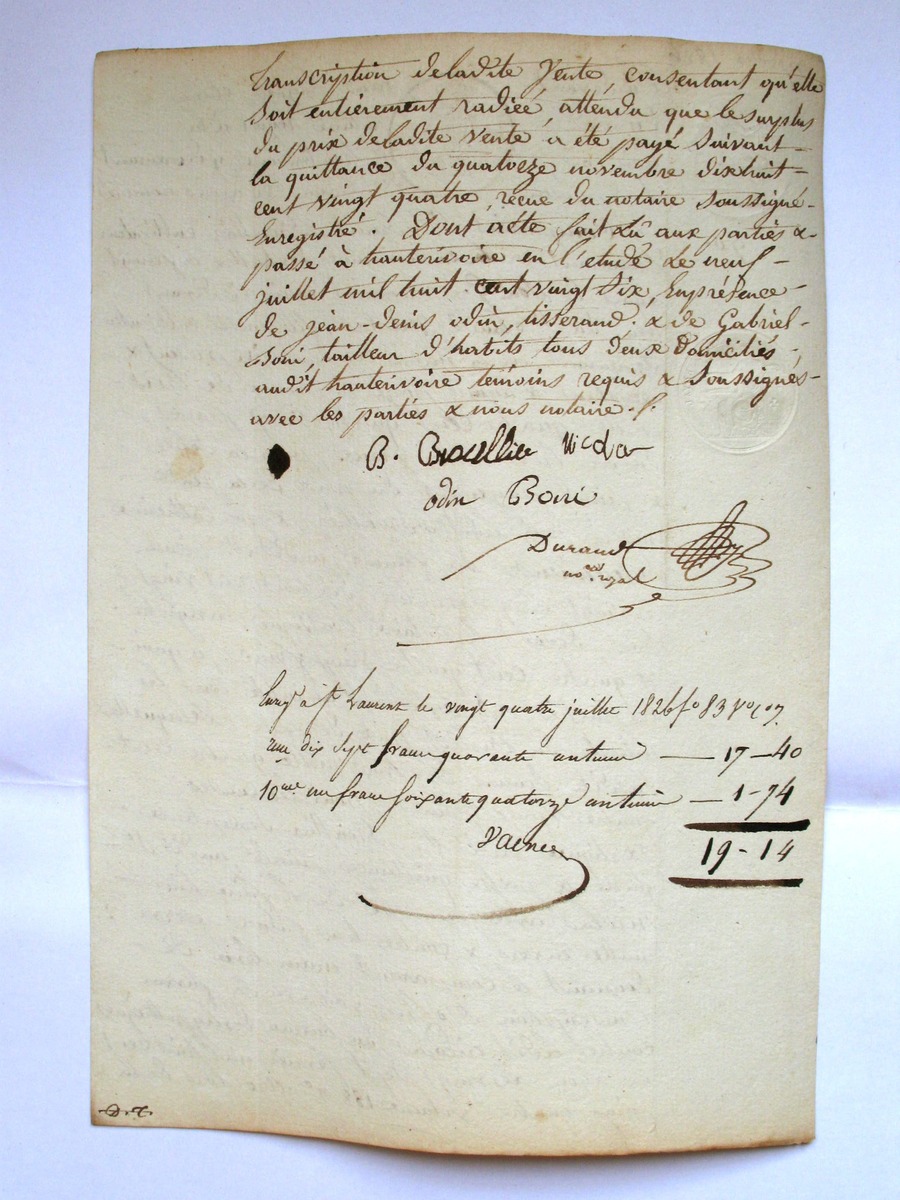 transcription deladite vente, consentant qu'elle
soit entiérement radiéé, attendu que le surplus
du prix deladite vente a été payé suivant
la quittance du quatorze novembre dixhuit
cent vingt quatre, reçue du notaire soussigné
Enregistré. Dont acte fait Lû aux parties &
passé à hauterivoire en l'etude Le neuf
juillet mil huit cent vingt Six, En présence
de jean-denis odin, tisserand. & de Gabriel
Boni, tailleur d'habits tous deux domiciliés
audit hauterivoire temoins requis & Soussignés
avec les parties & nous notaire.
B.
odin
Durand
no.re royal
Enreg.é à St Laurent le vingt quatre juillet 1826 fo 83 Vo co 7.
reçu dix Sept francs quarante centimes — 17 — 40
10me un franc soixante quatorze centimes — 1 - 74
19 - 14
D.T.